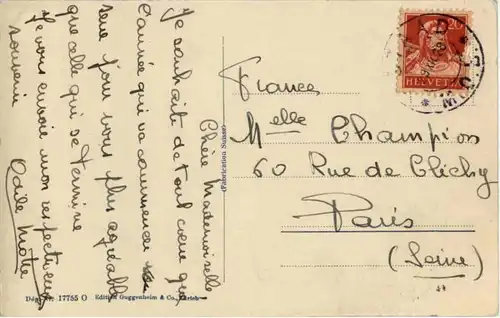 Chère Mademoiselle
Je souhaite de tout cœur que
l'année qui va commencer
sera pour vous plus agréable
que celle qui se termine
Je vous envoie mon respectueux
souvenir
Odile
(Fabrication Suisse)
17755 O Edition Guggenheim & Co., Zürich
20
HELVETIA
France
Melle Champion
60 Rue de Clichy
Paris
(Seine)